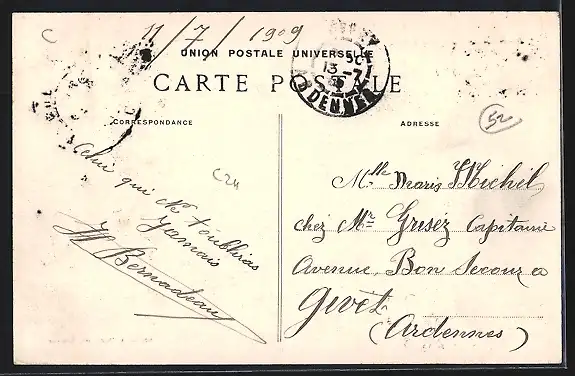 C
11/7/1909
UNION POSTALE UNIVERSELLE
CARTE POSTALE
13-7
ARDENNES
CORRESPONDANCE
ADRESSE
52
C24
Celui qui ne t'oublieras
Jamais
H Bernadeau
Mlle Maris Michel
chez Mr Grisez Capitaine
Avenue, Bon Secour a
Givet
(Ardennes)